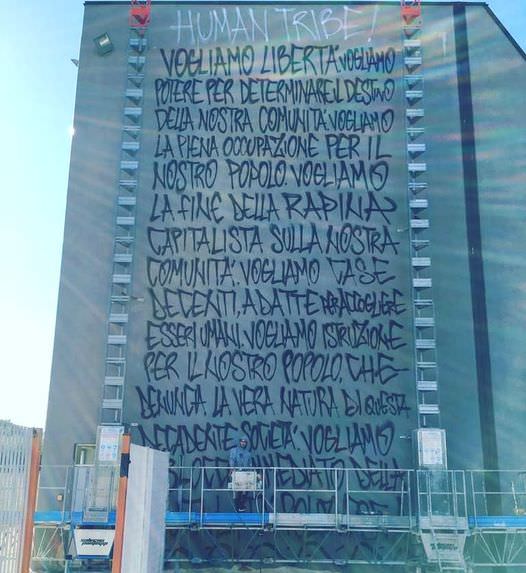 HUMAN TRIBE!
VOGLIAMO LIBERTÀ. VOGLIAMO
POTERE PER DETERMINARE IL DESTINO
DELLA NOSTRA COMUNITÀ. VOGLIAMO
LA PIENA OCCUPAZIONE PER IL
NOSTRO POPOLO VOGLIAMO
LA FINE DELLA RAPINA
CAPITALISTA SULLA NOSTRA
COMUNITÀ. VOGLIAMO CASE
DECENTI, ADATTE PER ACCOGLIERE
ESSERI UMANI. VOGLIAMO ISTRUZIONE
PER IL NOSTRO POPOLO, CHE
DENUNCIA LA VERA NATURA DI QUESTA
DECADENTE SOCIETÀ. VOGLIAMO
DELLA